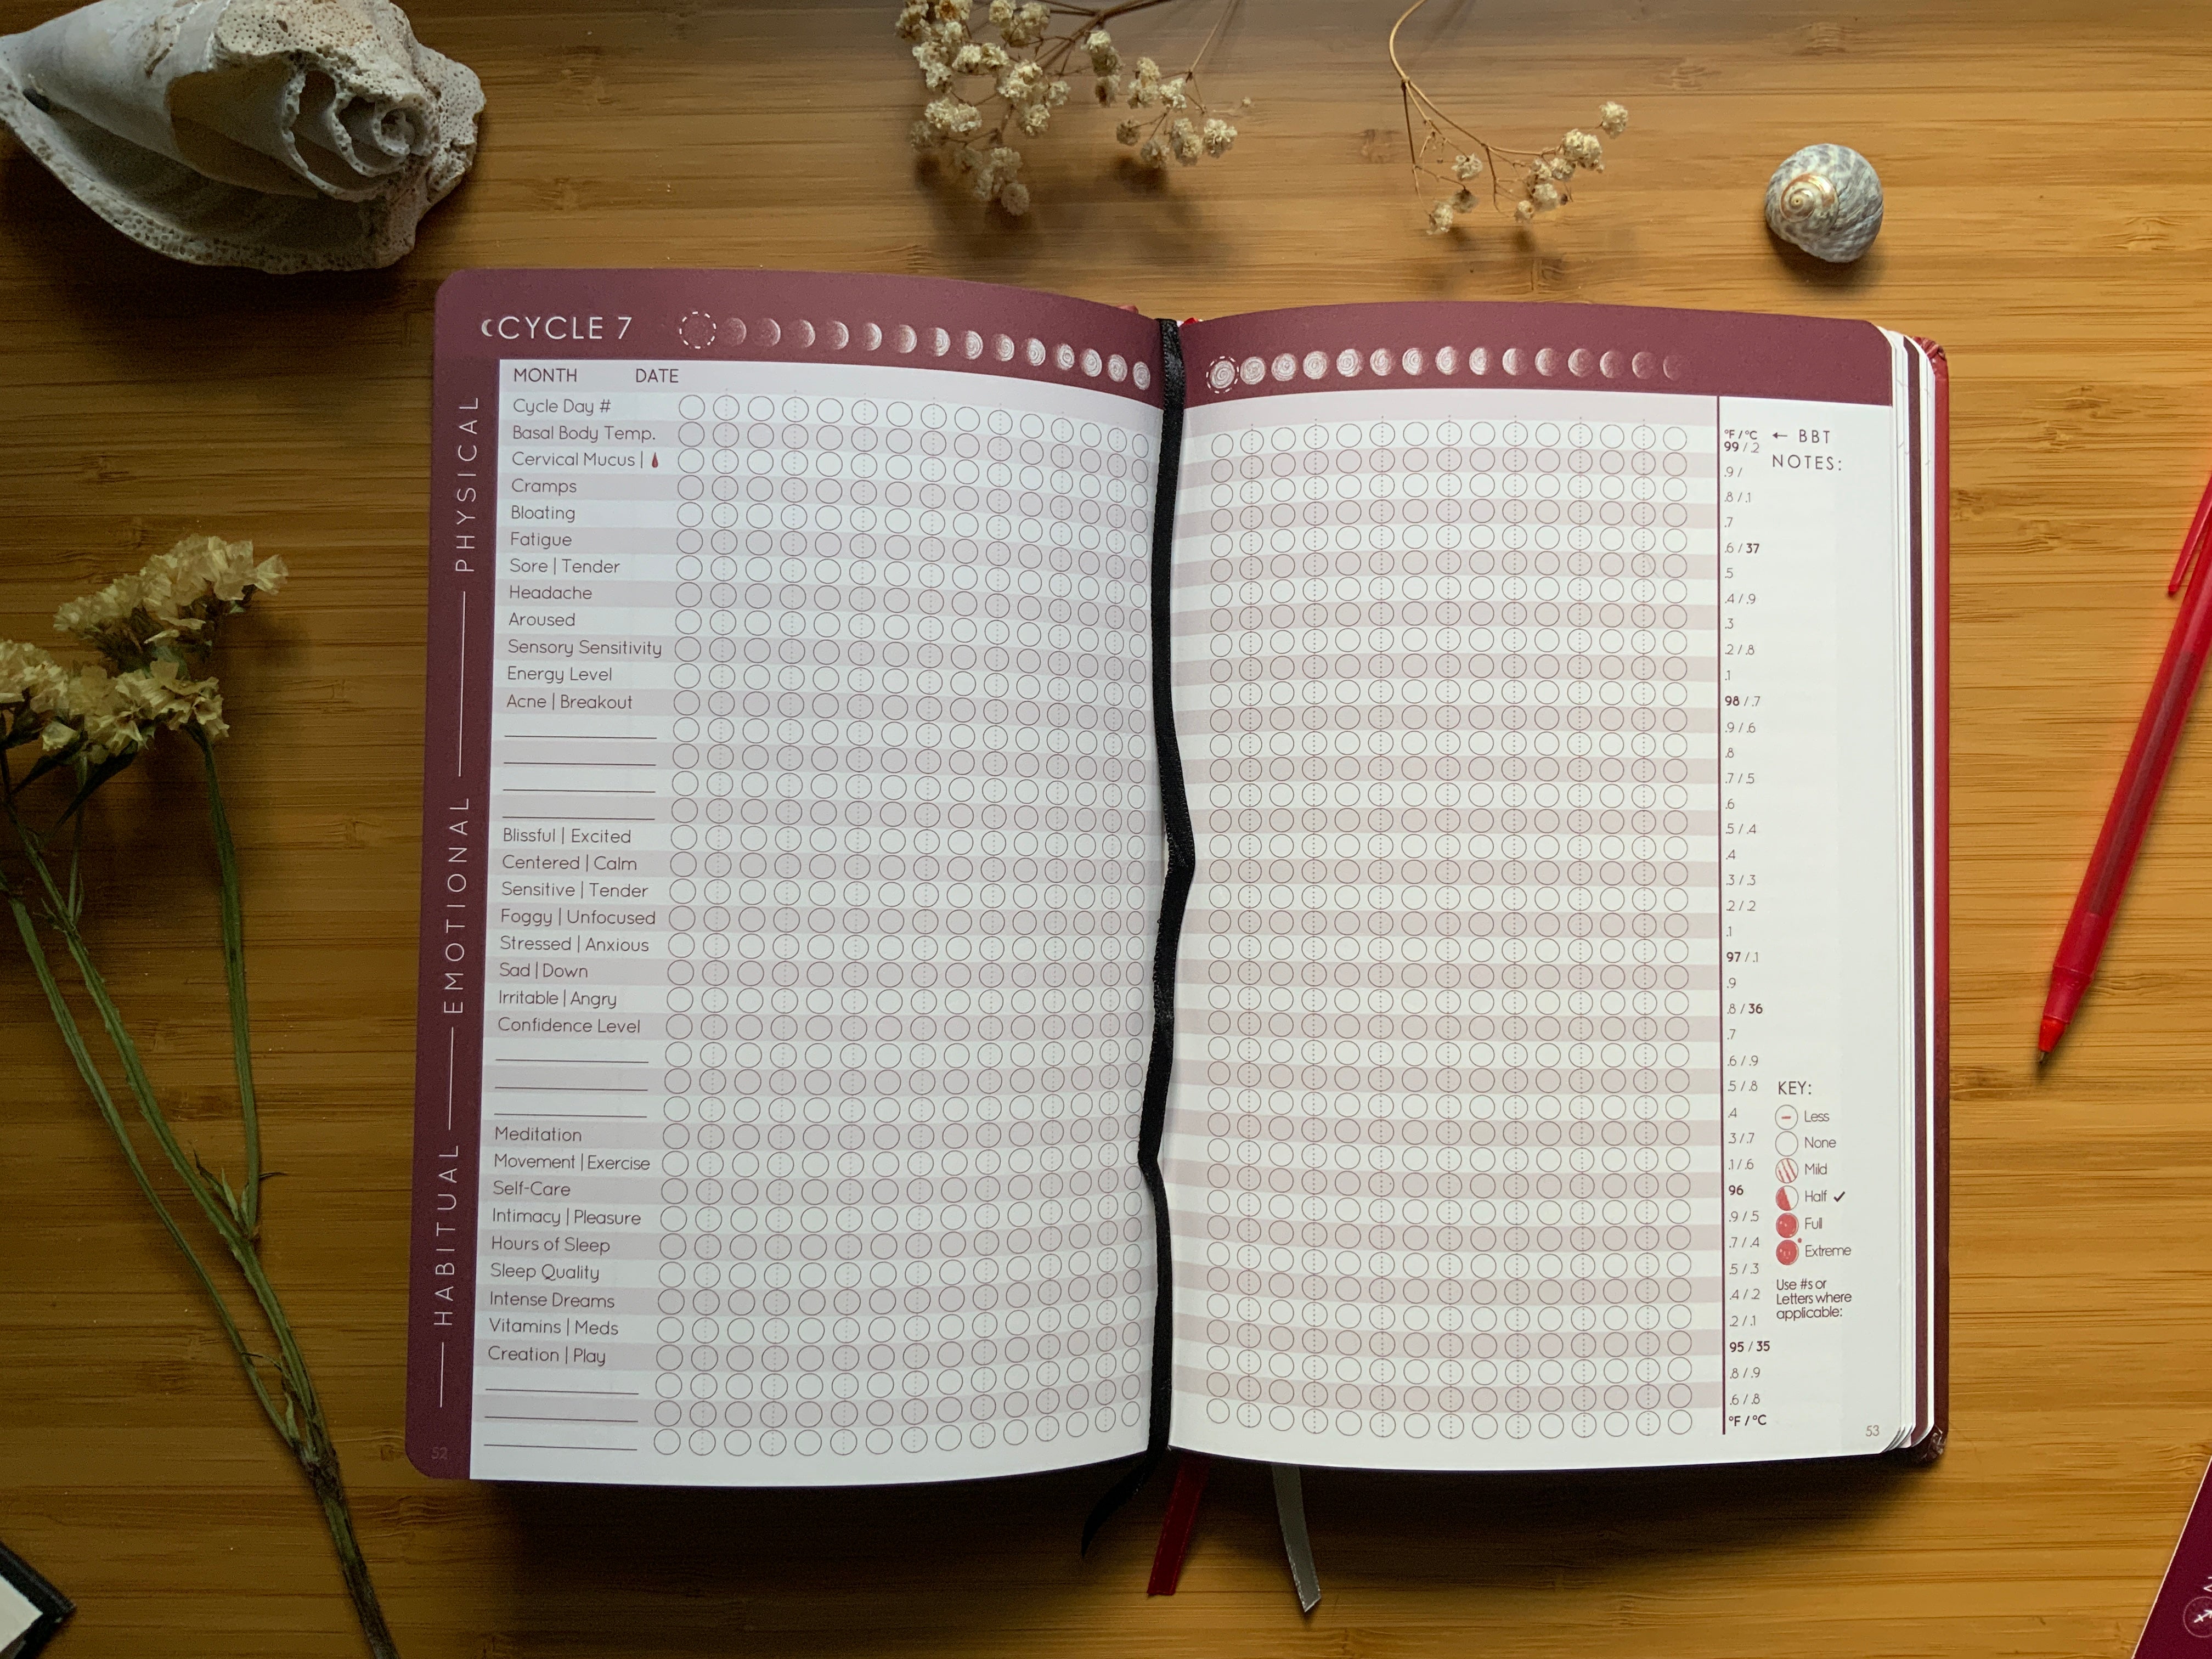 CYCLE 7
MONTH DATE
PHYSICAL
Cycle Day #
Basal Body Temp.
Cervical Mucus |
Cramps
Bloating
Fatigue
Sore | Tender
Headache
Aroused
Sensory Sensitivity
Energy Level
Acne | Breakout
EMOTIONAL
Blissful | Excited
Centered | Calm
Sensitive | Tender
Foggy | Unfocused
Stressed | Anxious
Sad | Down
Irritable | Angry
Confidence Level
HABITUAL
Meditation
Movement | Exercise
Self-Care
Intimacy | Pleasure
Hours of Sleep
Sleep Quality
Intense Dreams
Vitamins | Meds
Creation | Play
52
°F / °C ← BBT
99 / .2
NOTES:
.9 /
.8 / .1
.7
.6 / 37
.5
.4 / .9
.3
.2 / .8
.1
98 / .7
.9 / .6
.8
.7 / .5
.6
.5 / .4
.4
.3 / .3
.2 / .2
.1
97 / .1
.9
.8 / 36
.7
.6 / .9
.5 / .8
.4
.3 / .7
.1 / .6
96
.9 / .5
.7 / .4
.5 / .3
.4 / .2
.2 / .1
95 / 35
.8 / .9
.6 / .8
°F / °C
KEY:
Less
None
Mild
Half ✓
Full
Extreme
Use #s or
Letters where
applicable:
53